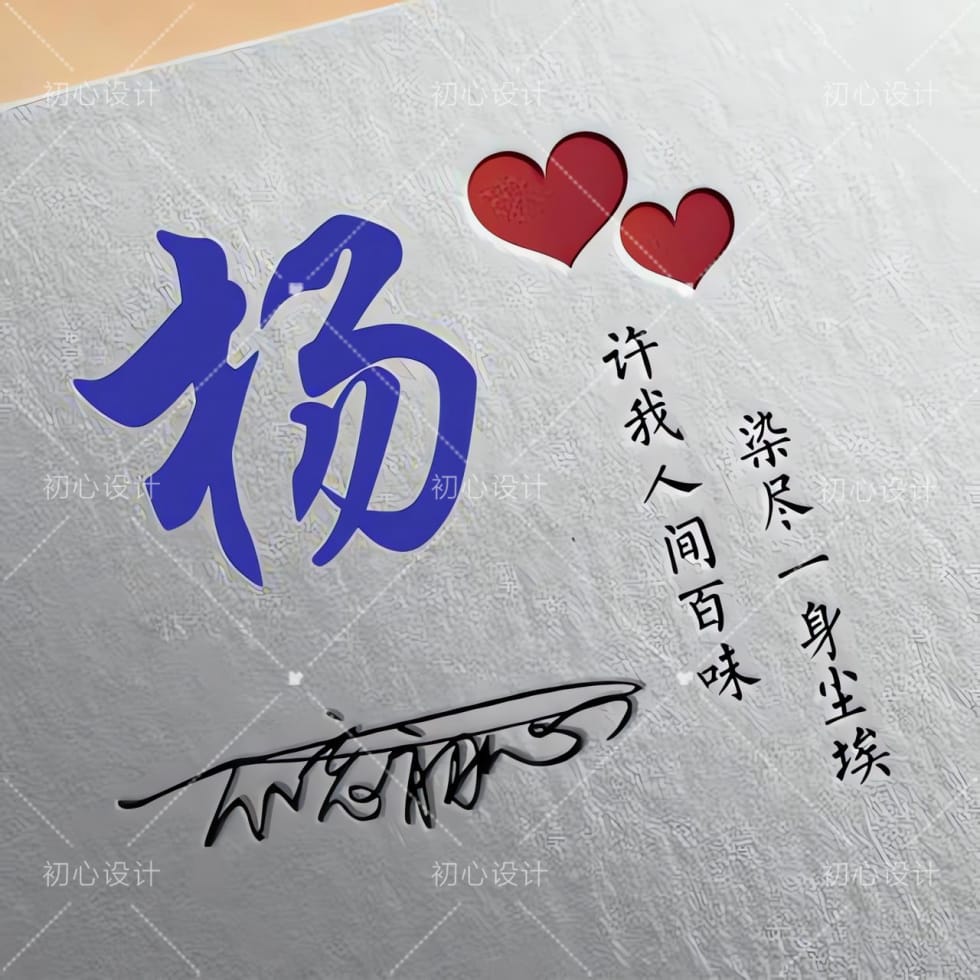 初心设计 初心设计 初心设计
杨
许我人间百味
染尽一身尘埃
初心设计 初心设计 初心设计
初心设计 初心设计 初心设计